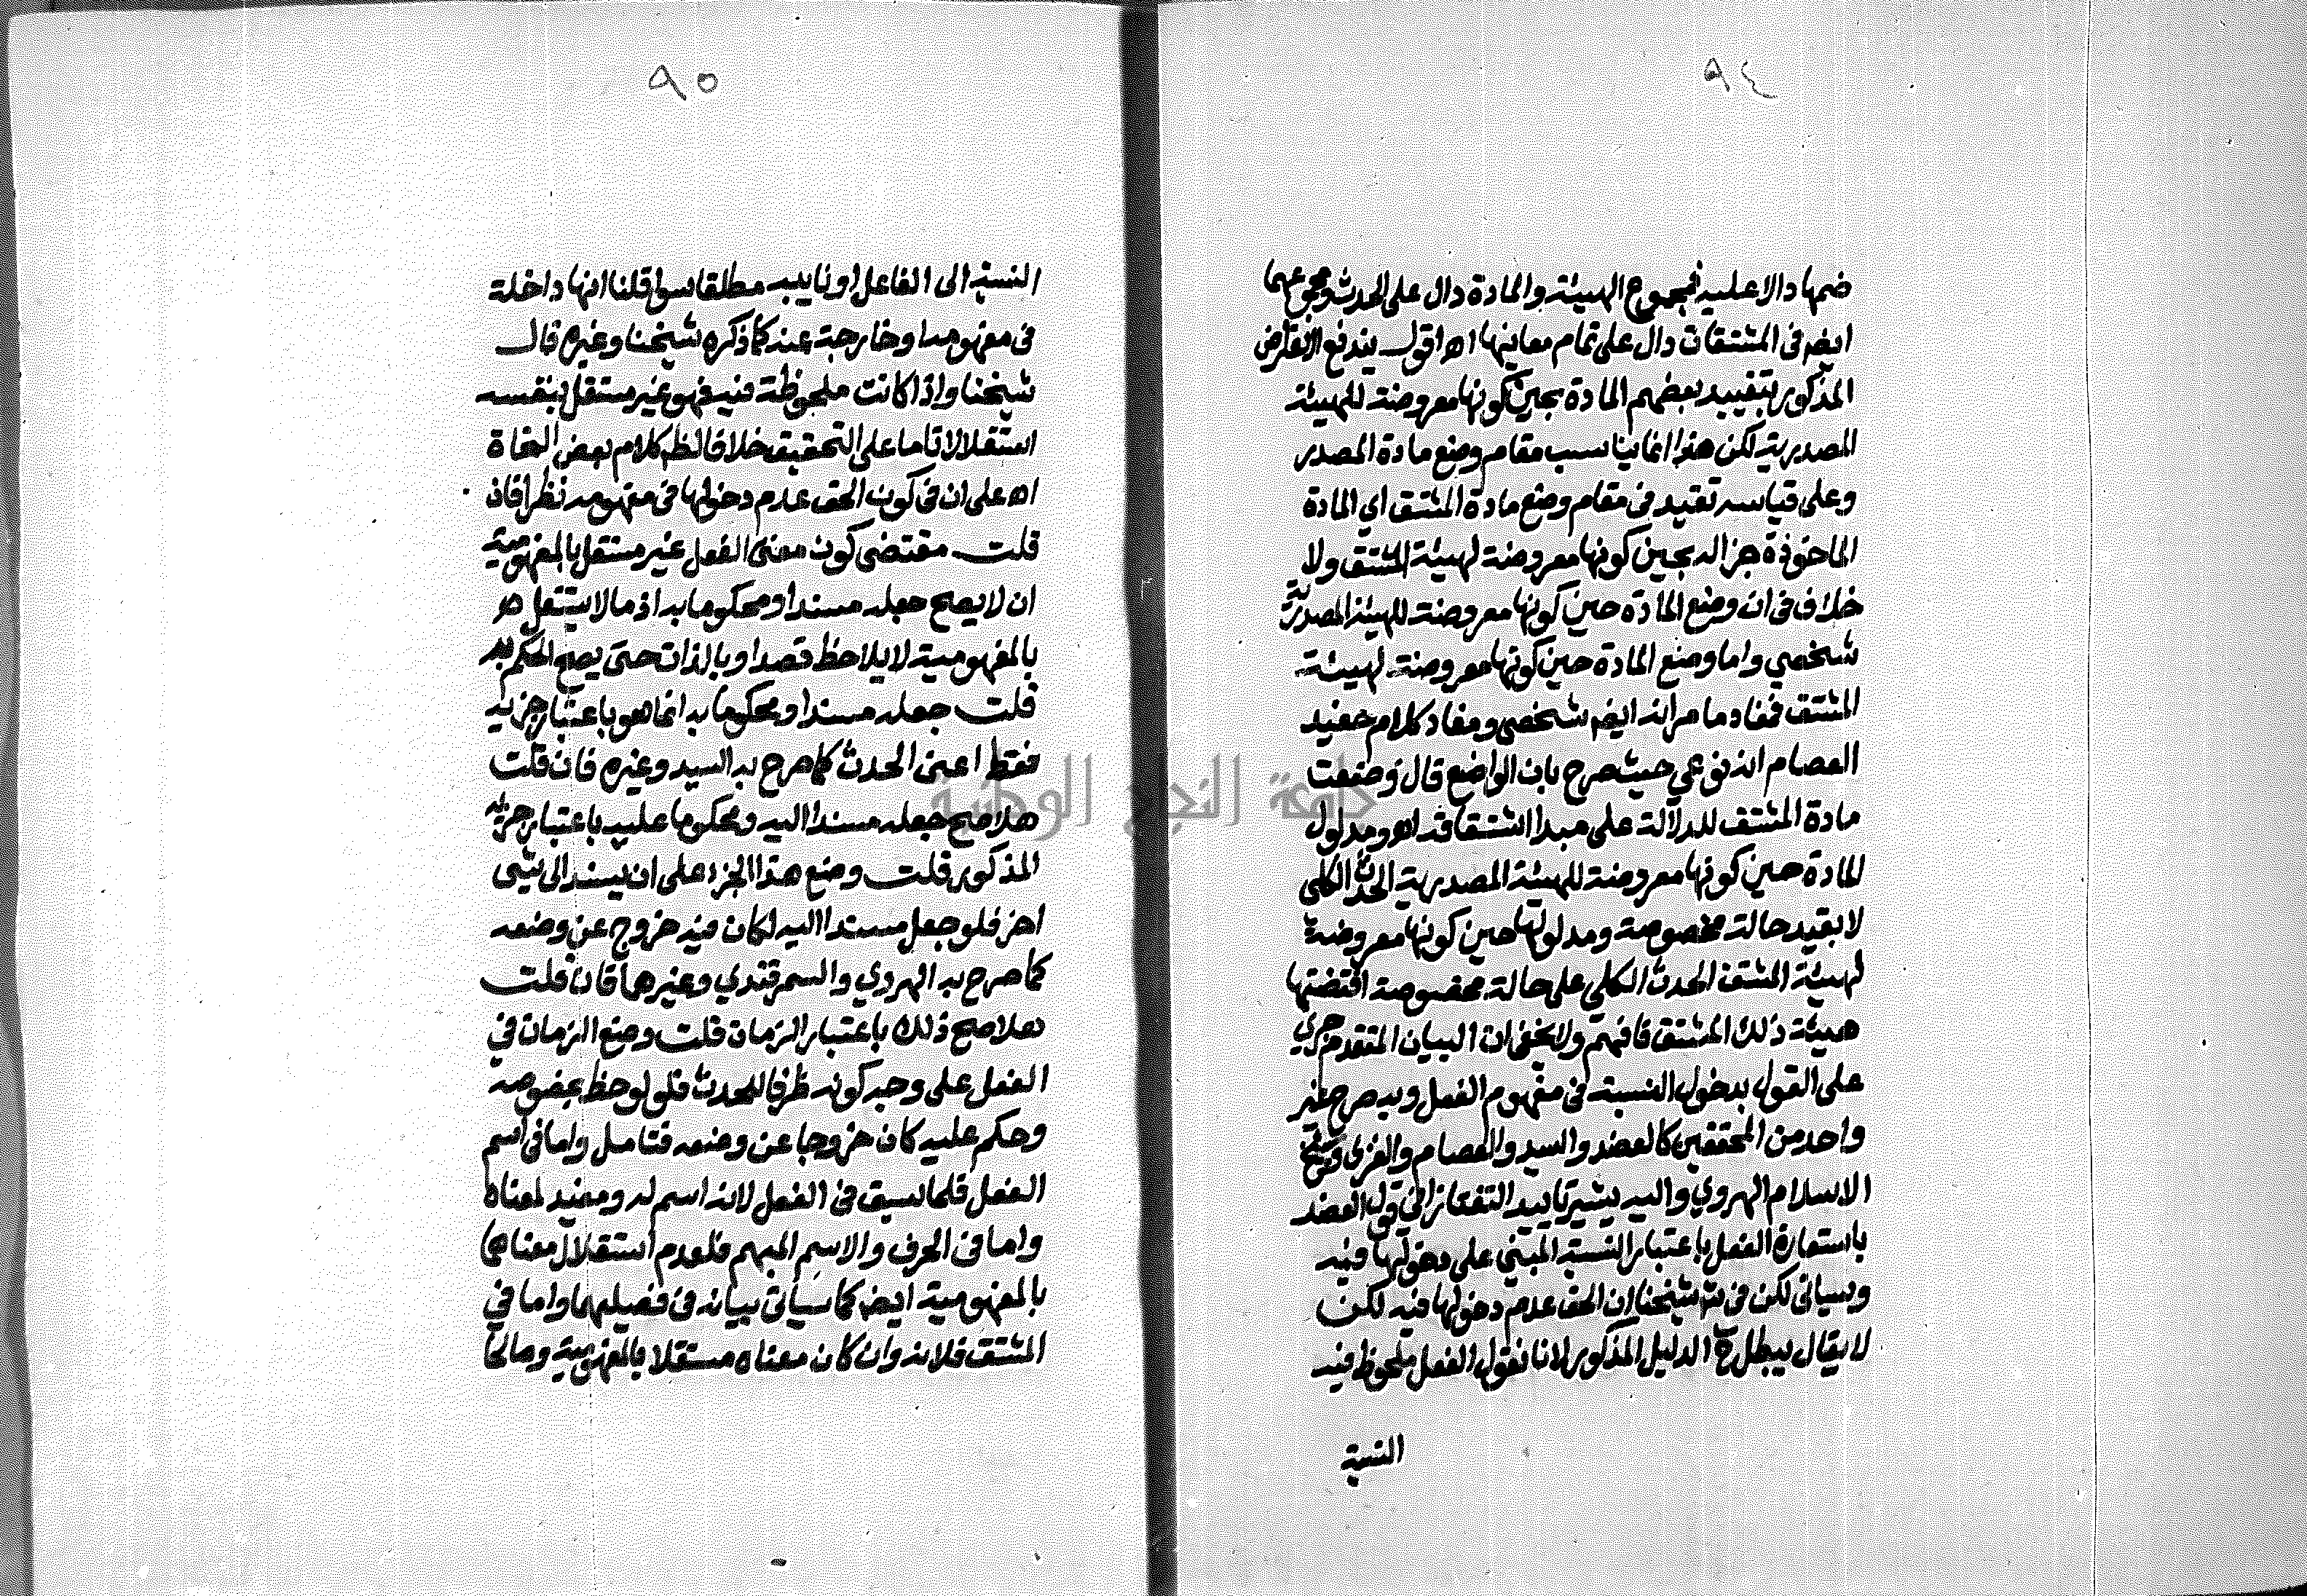 ٩٤
ضمها دالا عليه فمجموع الهيئة والمادة دال على الحدث ومجموعهما
ايضا في المشتقات دال على تمام معانيها اه اقول يندفع الاعتراض
المذكور بتقييد بعضهم المادة بحين كونها معروضة للهيئة
المصدرية لكن هذا انما يناسب مقام وضع مادة المصدر
وعلى قياسه تقيد في مقام وضع مادة المشتق اي المادة
الماخوذة جزا له بحين كونها معروضة لهيئة المشتق ولا
خلاف في ان وضع المادة حين كونها معروضة للهيئة المصدرية
شخصي واما وضع المادة حين كونها معروضة لهيئة
المشتق فمفاد ما مر انه ايضا شخصي ومفاد كلام حفيد
العصام انه نوعي حيث صرح بان الواضع قال وضعت
مادة المشتق للدلالة على مبدا اشتقاقه اه ومدلول
المادة حين كونها معروضة للهيئة المصدرية الحدث الكلي
لا بقيد حالة مخصوصة ومدلولها حين كونها معروضة
لهيئة المشتق الحدث الكلي على حالة مخصوصة اقتضتها
هيئة ذلك المشتق فافهم ولا يخفى ان البيان المتقدم جرى
على القول بدخول النسبة في مفهوم الفعل وبه صرح غير
واحد من المحققين كالعضد والسيد والعصام والغزي وشيخ
الاسلام الهروي واليه يشير تاييد التفتازاني قول العضد
باستعارة الفعل باعتبار النسبة المبني على دخولها فيه
وسياتي لكن في ش شيخنا ان الحق عدم دخولها فيه لكن
لا يقال يبطل ح الدليل المذكور لانا نقول الفعل ملحوظ فيه
النسبة
٩٥
النسبة الى الفاعل او نايبه مطلقا سوا قلنا انها داخلة
في مفهومه او خارجة عنه كما ذكره شيخنا وغيره قال
شيخنا واذا كانت ملحوظة فيه فهو غير مستقل بنفسه
استقلالا تاما على التحقيق خلافا لظ كلام بعض النحاة
اه على ان في كون الحق عدم دخولها في مفهومه نظرا فان
قلت مقتضى كون معنى الفعل غير مستقل بالمفهومية
ان لا يصح جعله مسندا ومحكوما به اذ ما لا يستقل هو
بالمفهومية لا يلاحظ قصدا وبالذات حتى يصح الحكم به
قلت جعله مسندا ومحكوما به انما هو باعتبار جزئه
فقط اعني الحدث كما صرح به السيد وغيره فان قلت
هلا صح جعله مسندا اليه ومحكوما عليه باعتبار جزئه
المذكور قلت وضع هذا الجزء على ان يسند الى شيى
اخر فلو جعل مسندا اليه لكان فيه خروج عن وضعه
كما صرح به الهروي والسمرقندي وغيرهما فان قلت
هلا صح ذلك باعتبار الزمان قلت وضع الزمان في
الفعل على وجه كونه ظرفا للحدث فلو لوحظ بخصوصه
وحكم عليه كان خروجا عن وضعه فتامل واما في اسم
الفعل فلما سبق في الفعل لانه اسم له ومفيد لمعناه
واما في الحرف والاسم المبهم فلعدم استقلال معناهما
بالمفهومية ايضا كما سيأتي بيانه في فصليهما واما في
المشتق فلانه وان كان معناه مستقلا بالمفهومية وصالحا
جامعة النجاح الوطنية